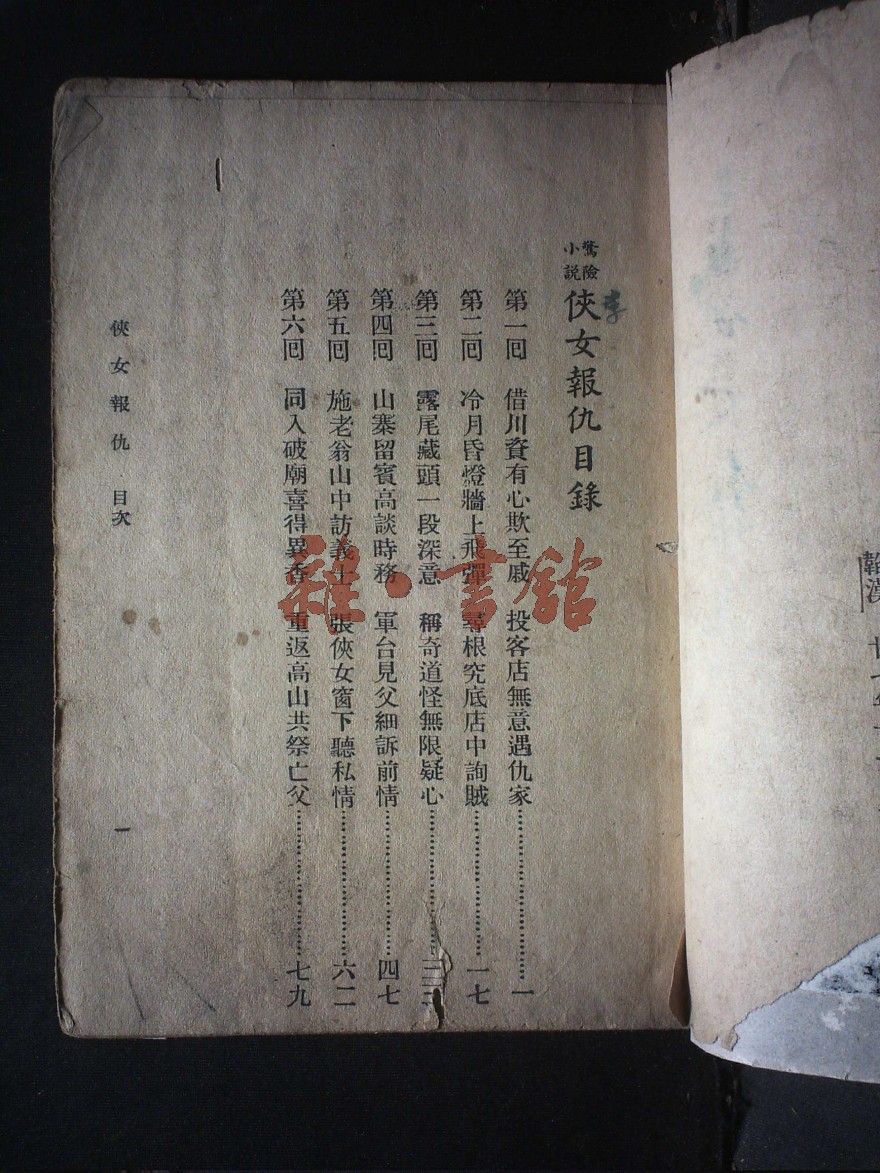 驚險小說
俠女報仇目錄
第一回 借川資有心欺至戚 投客店無意遇仇家………………一
第二回 冷月昏燈牆上飛彈 尋根究底店中詢賊………………一七
第三回 露尾藏頭一段深意 稱奇道怪無限疑心………………三二
第四回 山寨留賓高談時務 軍台見父細訴前情………………四七
第五回 施老翁山中訪義士 張俠女窗下聽私情………………六二
第六回 同入破廟喜得異香 重返高山共祭亡父………………七九
俠女報仇 目次
一
雜·書館